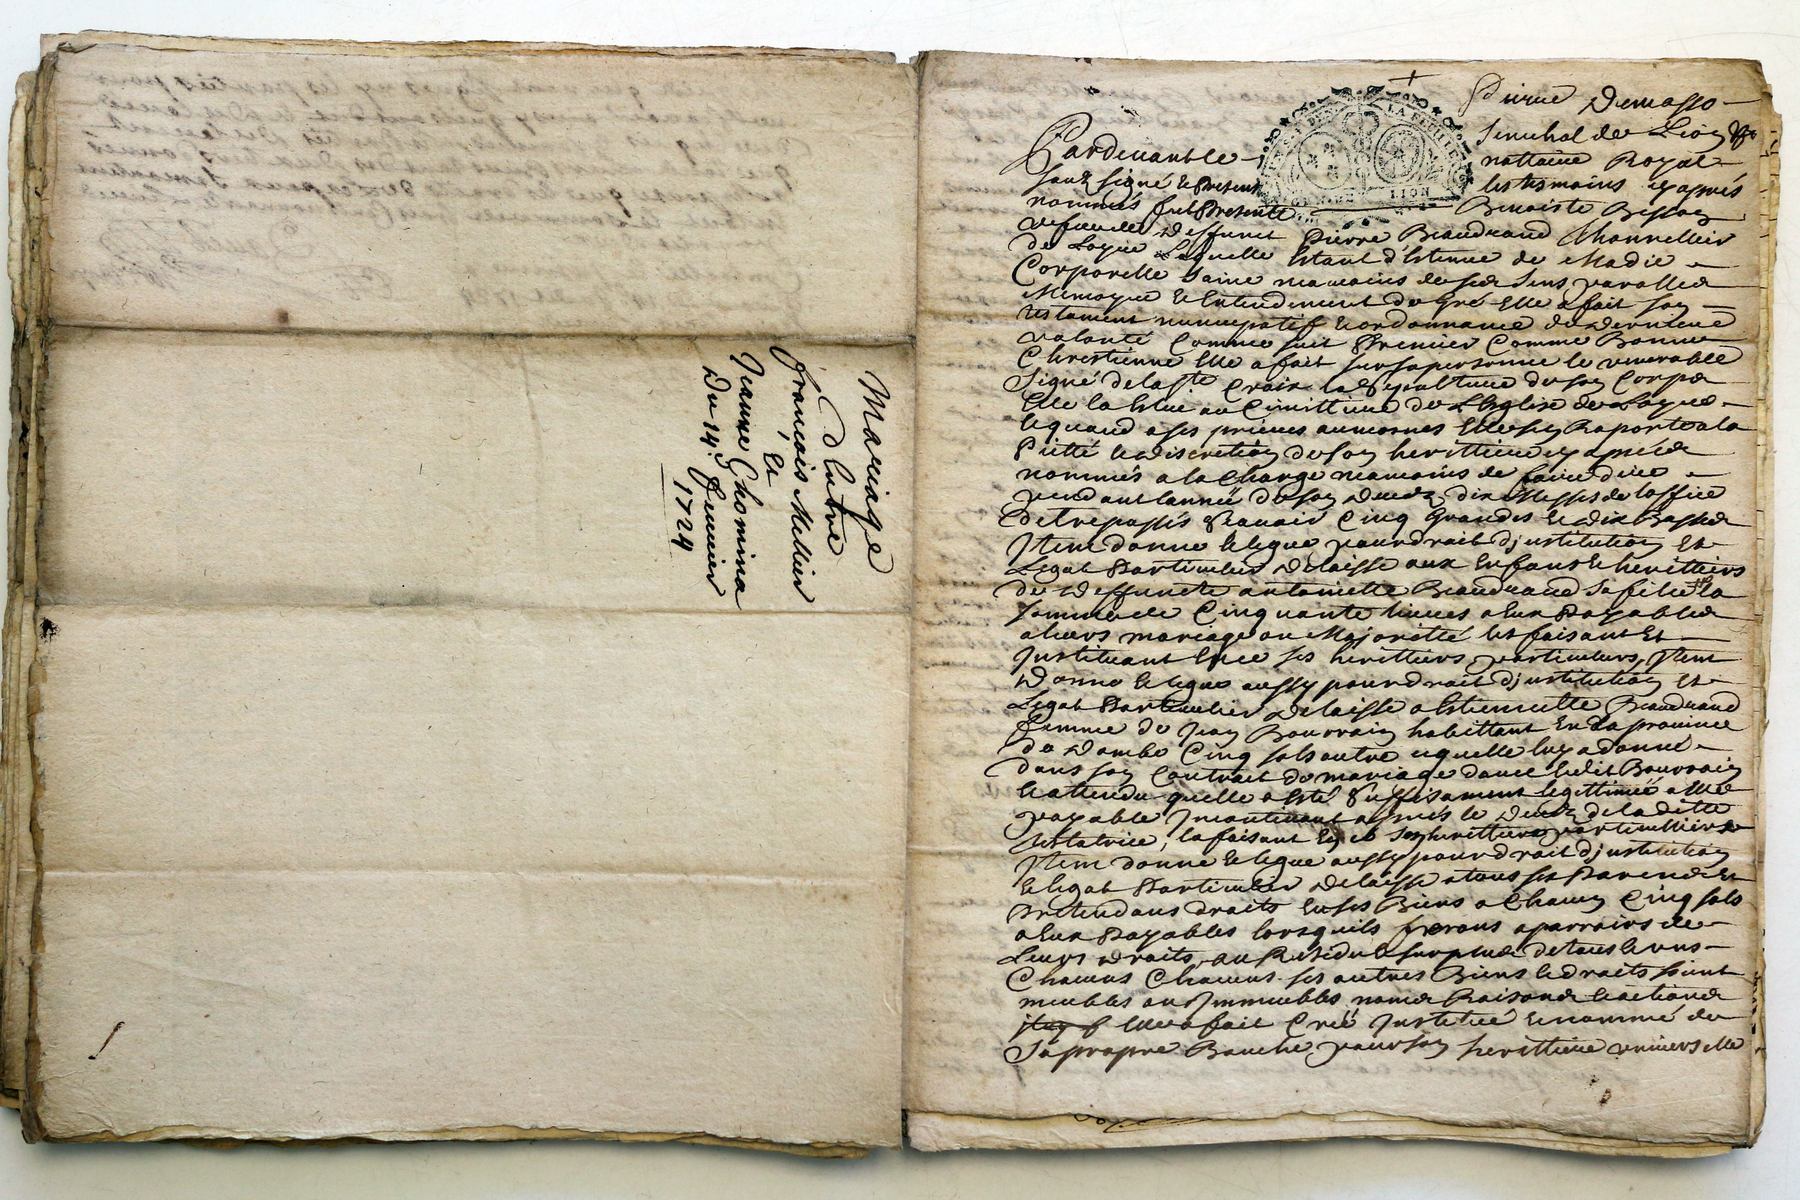 Mariage
d'Entre
françois Mellier
Et
Jeanne Thomina
Du 14.e Jenvier
1724
Pierre Demasso
Pardevant le
Senechal de Lion
nottaire Royal
LA FEUILLE
LION
soub signé et present
les tesmoins cy apres
nommés fut presente
Benoiste Besson
vefve de deffunct Pierre Beaudrand
de Laquelle Estant d'Etenue de Maladie
Corporelle saine neamoins de ses sens parolles
Memoyre et Entendement de gré Elle a fait son
testament nuncupatif et ordonnance de derniere
volonté Comme suit Premier Comme Bonne
Chrestienne Elle a fait sur sa personne le venerable
signé de la ste Croix la sepulture de son Corps
Elle la Elue au Cimittiere de L'Eglise de
et quand a ses prieres aumosnes Elle s'en raporte a la
Pietté et discretion de son herittiere cy apres
nommés a la Charge neamoins de faire dire
pendant l'année de son deces dix Messes de l'office
de trepassés scavoir Cinq Grandes et dix Basses
Item donne et legue pour droit d'jnstitution et
Legat Particulier delaisse aux Enfans et herittiers
de deffuncte antoinette Beaudrand sa fille la
somme de Cinquante livres a Eux payables
a leurs mariage ou Majoritté les faisant Et
Jnstituant En ce ses herittiers particuliers, Item
Donne et legue aussy pour droit d'jnstitution et
Legat Particulier delaisse a Estiennette Beaudrand
femme de Jean Bouvrain habittant En la province
de Dombe Cinq sols outre ce quelle luy a donné
dans son Contrait de mariage avec ledit Bouvrain
et attendu quelle a Esté suffisament legittimée a Elle
payable jncontinant apres le deces de la ditte
testatrice, la faisant En ce son herittiere particulliere
Item donne et legue aussy pour droit d'jnstitution
et legat Particulier delaisse a tous ses Parends et
Pretendans droits En ses Biens a Chacun Cinq sols
a Eux Payables lorsquils feront aparroirs de
Leurs droits, au Residu et surplus de tous
Chacuns ses autres Biens et droits soient
meubles ou Jmmeubles noms Raisons et actions
Elle a fait Créé Jnstitué et nommé de
sa propre Bouche pour son herittiere universelle